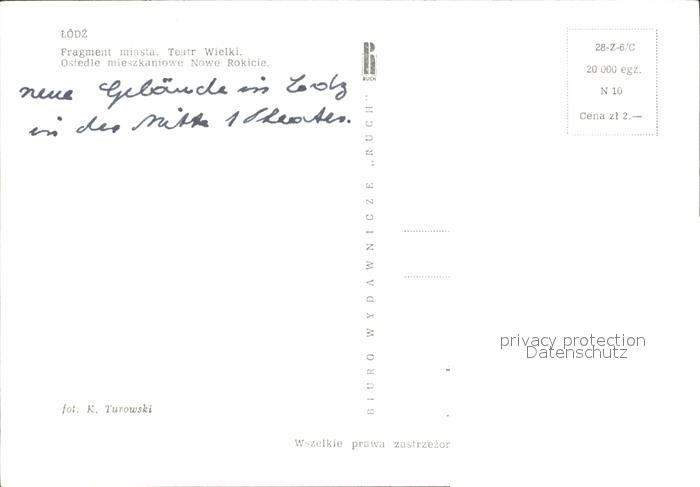 ŁÓDŹ
Fragment miasta. Teatr Wielki.
Osiedle mieszkaniowe Nowe Rokicie.
neue Gebäude in Lodz
in der Mitte 1 Theater.
RUCH
BIURO WYDAWNICZE „RUCH"
28-Z-6/C
20 000 egz.
N 10
Cena zł 2.—
privacy protection
Datenschutz
fot. K. Turowski
Wszelkie prawa zastrzeżon